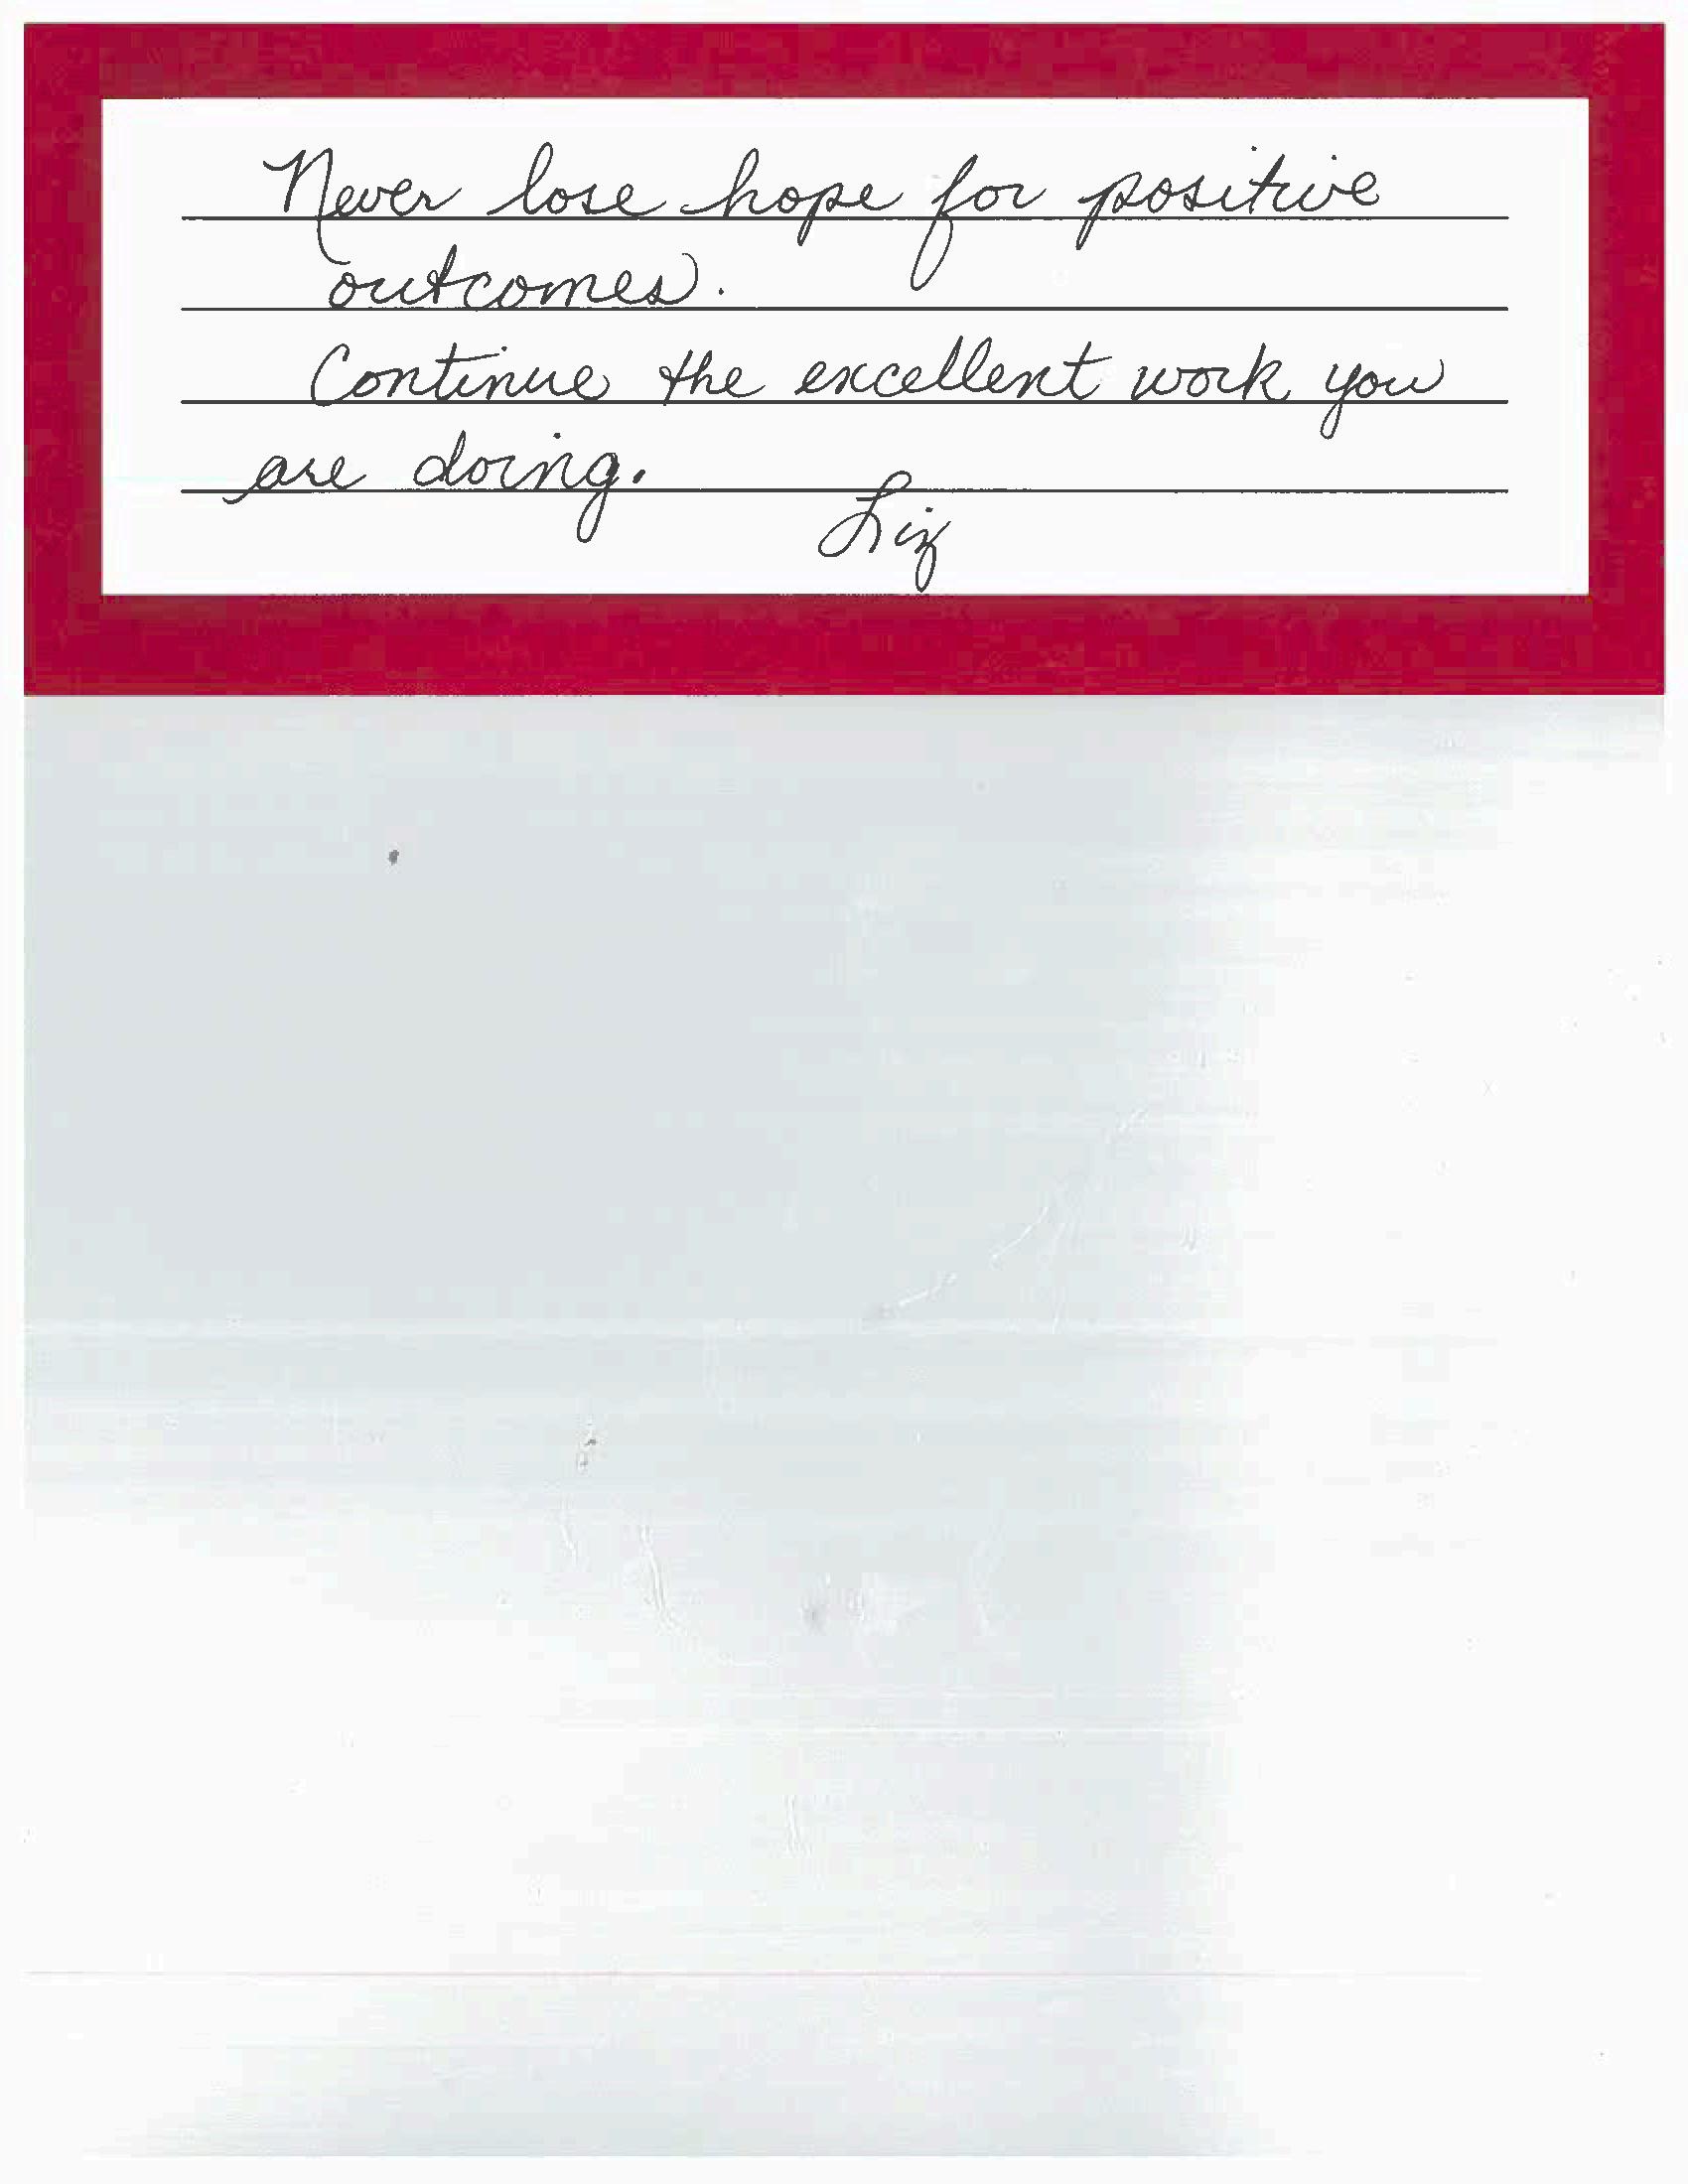 Never lose hope for positive
outcomes.
Continue the excellent work you
are doing.
Liz